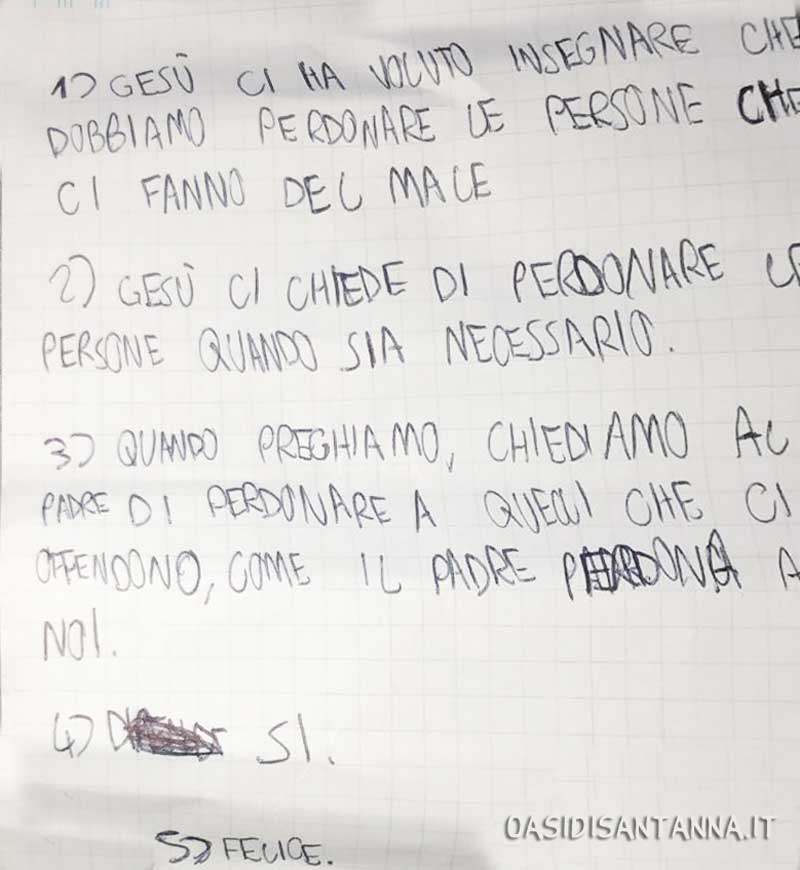 1) GESÙ CI HA VOLUTO INSEGNARE CHE
DOBBIAMO PERDONARE LE PERSONE CHE
CI FANNO DEL MALE
2) GESÙ CI CHIEDE DI PERDONARE LE
PERSONE QUANDO SIA NECESSARIO.
3) QUANDO PREGHIAMO, CHIEDIAMO AL
PADRE DI PERDONARE A QUELLI CHE CI
OFFENDONO, COME IL PADRE PERDONA A
NOI.
4) SI.
5) FELICE.
OASIDISANTANNA.IT